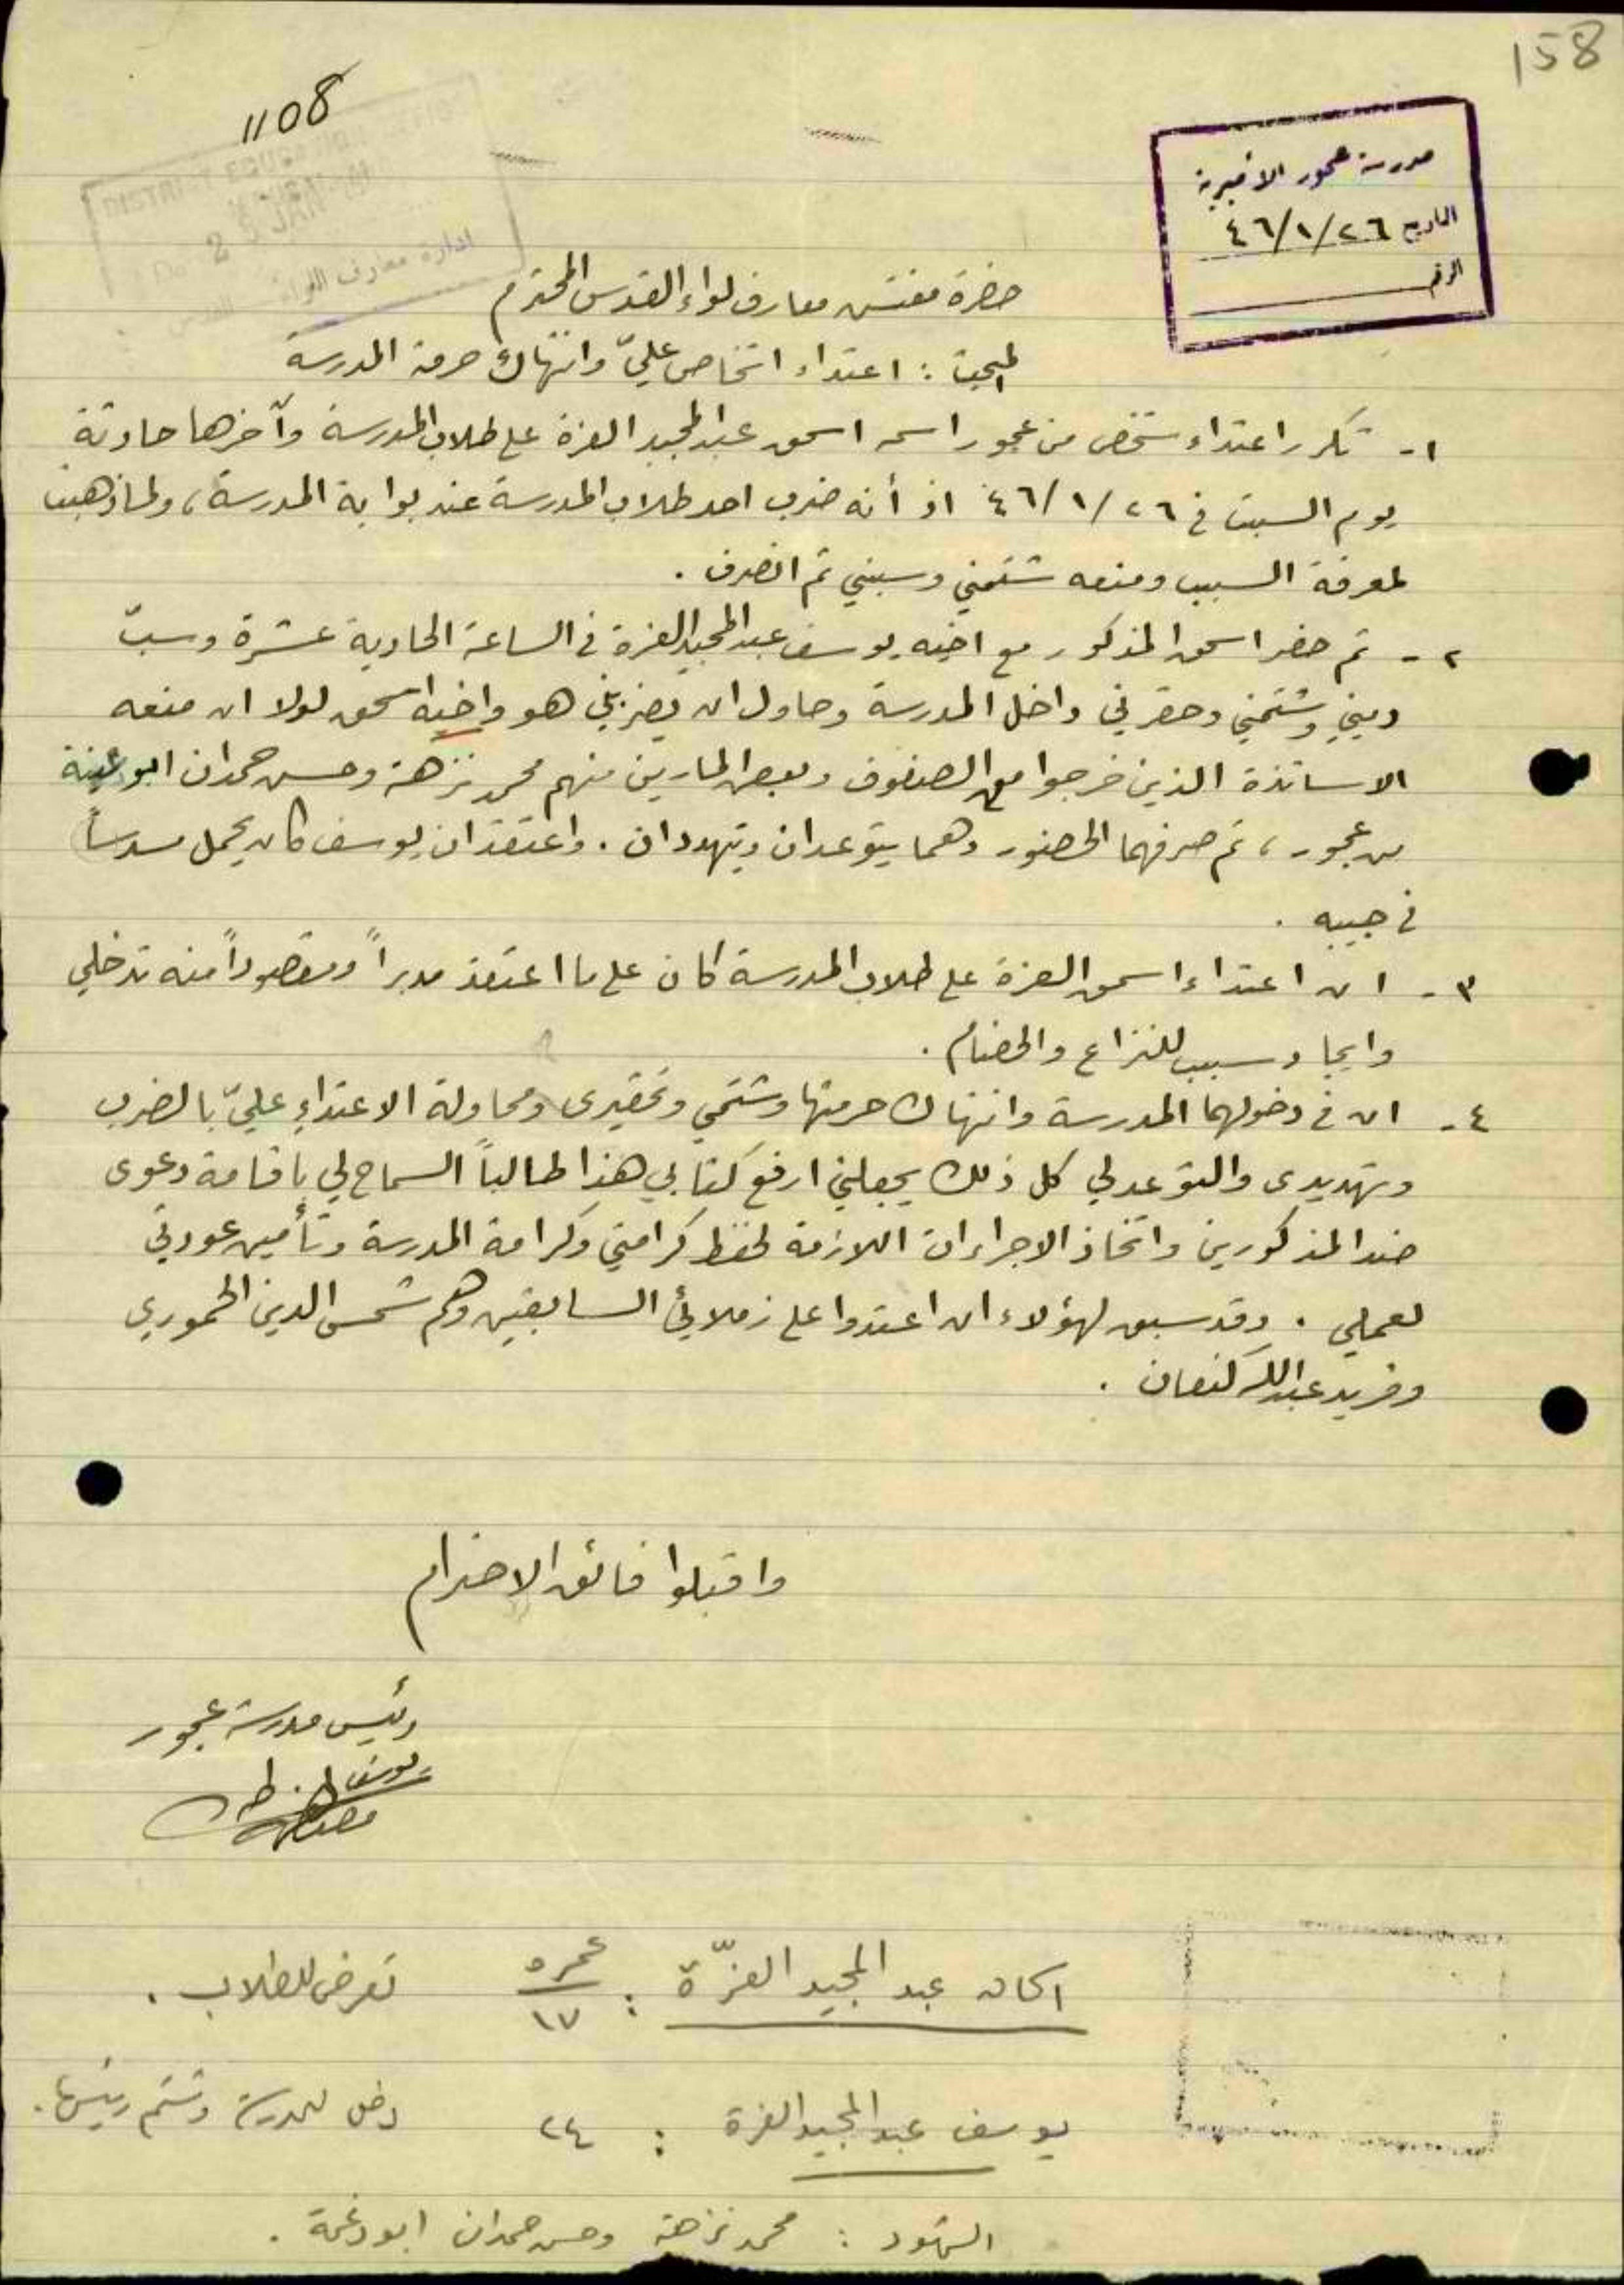 158
1108
مدرسة عجور الأميرية
التاريخ ٤٦/١/٢٦
الرقم
DISTRICT EDUCATION
JAN
ادارة معارف اللواء
حضرة مفتش معارف لواء القدس المحترم
المبحث : اعتداء اشخاص عليّ وانتهاك حرمة المدرسة
١- تكرر اعتداء شخص من عجور اسمه اسحق عبد المجيد العزة على طلاب المدرسة وآخرها حادثة
يوم السبت في ٤٦/١/٢٦ اذ أنه ضرب احد طلاب المدرسة عند بوابة المدرسة، ولما ذهبت
لمعرفة السبب ومنعه شتمني وسبني ثم انصرف .
٢- ثم حضر اسحق المذكور مع اخيه يوسف عبد المجيد العزة في الساعة الحادية عشرة وسبّ
ديني وشتمني وحقرني داخل المدرسة وحاول ان يضربني هو واخيه اسحق لولا ان منعه
الاساتذة الذين خرجوا مع الصفوف وبعض المارين منهم محمد نزهة وحسن حمدان ابو
من عجور، ثم صرفهما الحضور وهما يتوعدان ويتهددان . واعتقد ان يوسف كان يحمل مسدساً
في جيبه .
٣- ان اعتداء اسحق العزة على طلاب المدرسة كان على ما اعتقد مدبراً ومقصوداً منه تدخلي
وايجاد سبب للنزاع والخصام .
٤- ان في دخولهما المدرسة وانتهاك حرمتها وشتمي وتحقيري ومحاولة الاعتداء عليّ بالضرب
وتهديدي والتوعد لي كل ذلك يجعلني ارفع كتابي هذا طالباً السماح لي بإقامة دعوى
ضد المذكورين واتخاذ الاجراءات اللازمة لحفظ كرامتي وكرامة المدرسة وتأمين عودتي
لعملي . وقد سبق لهؤلاء ان اعتدوا على زملائي السابقين وهم شمس الدين الحموري
وفريد عبد الله كنعان .
واقبلوا فائق الاحترام
رئيس مدرسة عجور
يوسف
اسحاق عبد المجيد العزّة : عمره ١٧ تعرض للطلاب .
يوسف عبد المجيد العزة : ٢٤ دخل المدرسة وشتم رئيسها .
الشهود : محمد نزهة وحسن حمدان ابو دغمة .